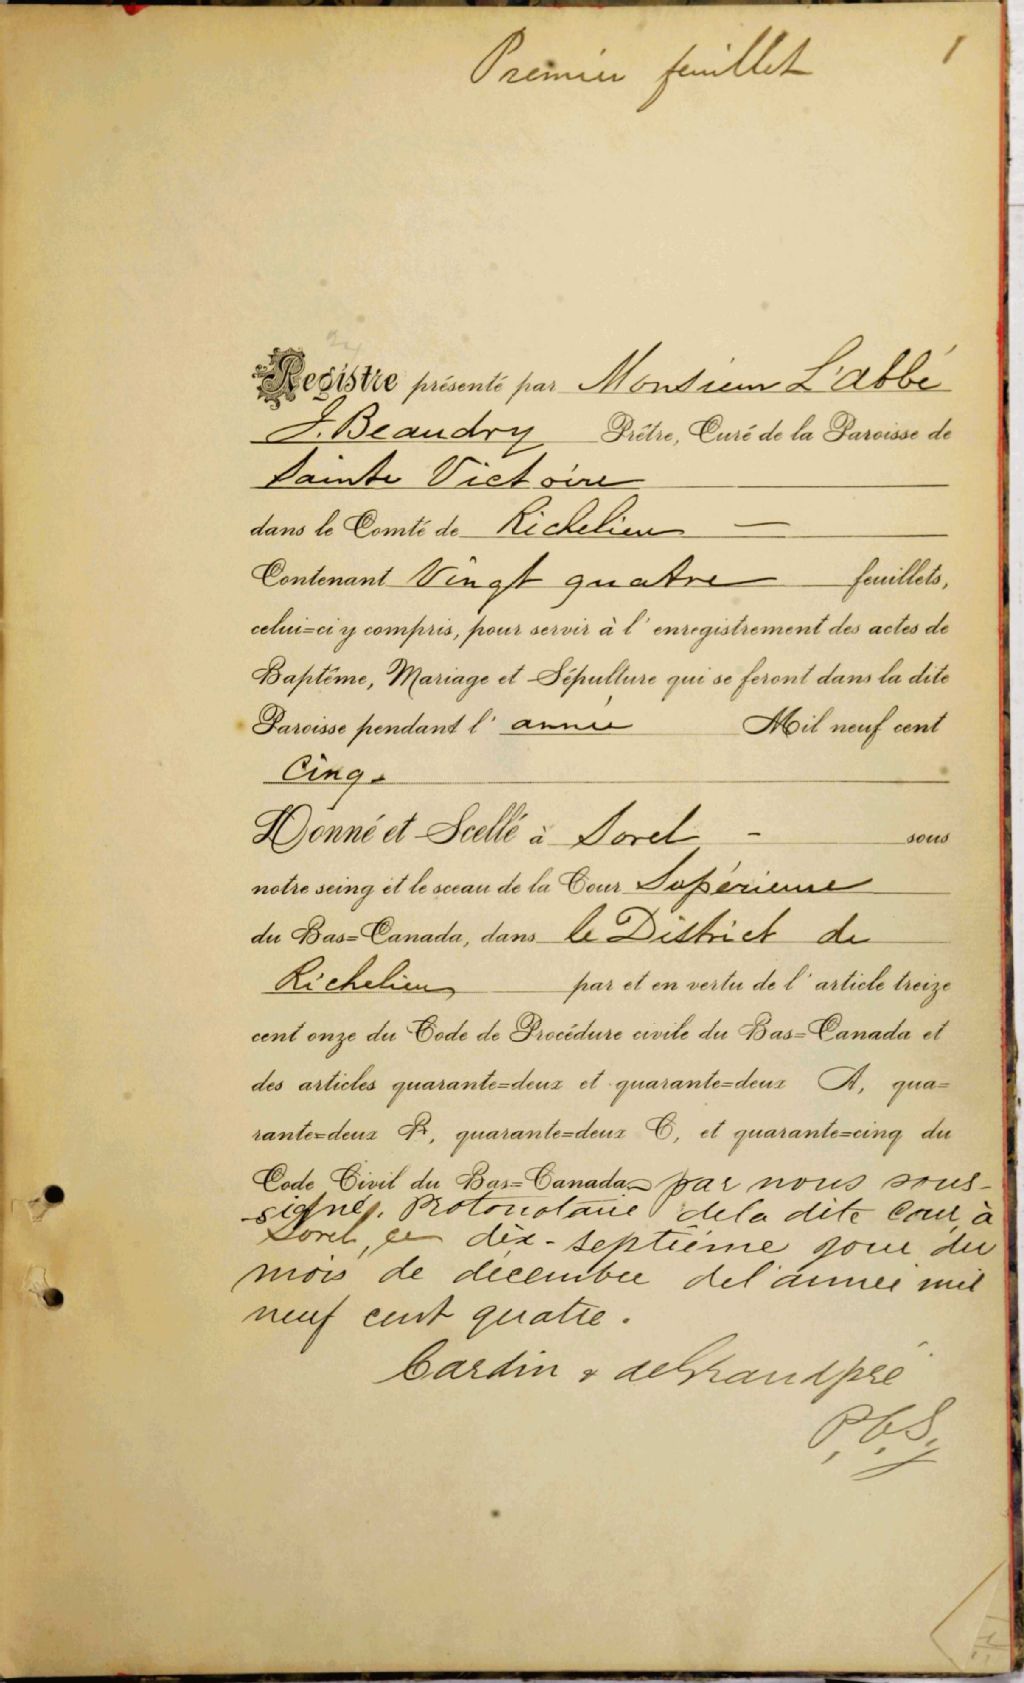 Premier feuillet
1
24
Registre présenté par Monsieur L'abbé
J. Beaudry Prêtre, Curé de la Paroisse de
Sainte Victoire
dans le Comté de Richelieu —
Contenant Vingt quatre feuillets,
celui=ci y compris, pour servir à l'enregistrement des actes de
Baptême, Mariage et Sépulture qui se feront dans la dite
Paroisse pendant l'année Mil neuf cent
Cinq.
Donné et Scellé à Sorel - sous
notre seing et le sceau de la Cour Supérieure
du Bas=Canada, dans le District de
Richelieu par et en vertu de l'article treize
cent onze du Code de Procédure civile du Bas=Canada et
des articles quarante=deux et quarante=deux A, qua=
rante=deux B, quarante=deux C, et quarante=cinq du
Code Civil du Bas=Canada par nous sous-
signés. Protonotaire de la dite Cour, à
Sorel, ce dix-septième jour du
mois de décembre de l'année mil
neuf cent quatre.
Cardin & deGrandpré
P.C.S.